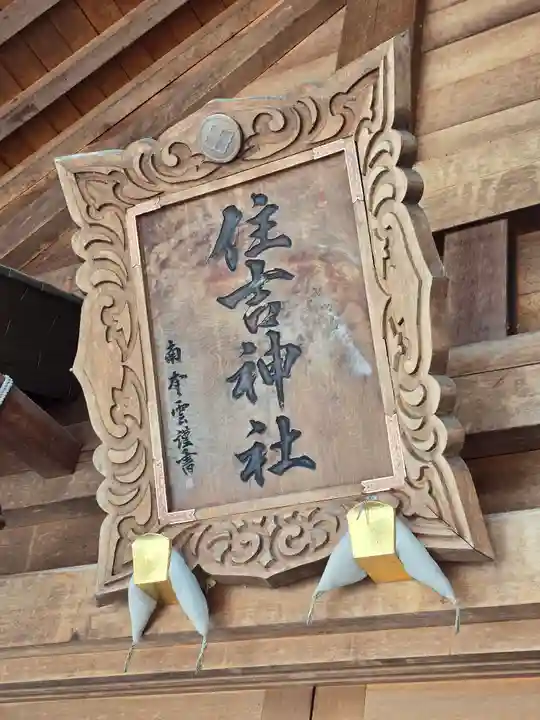 住吉神社
南岑雲謹書